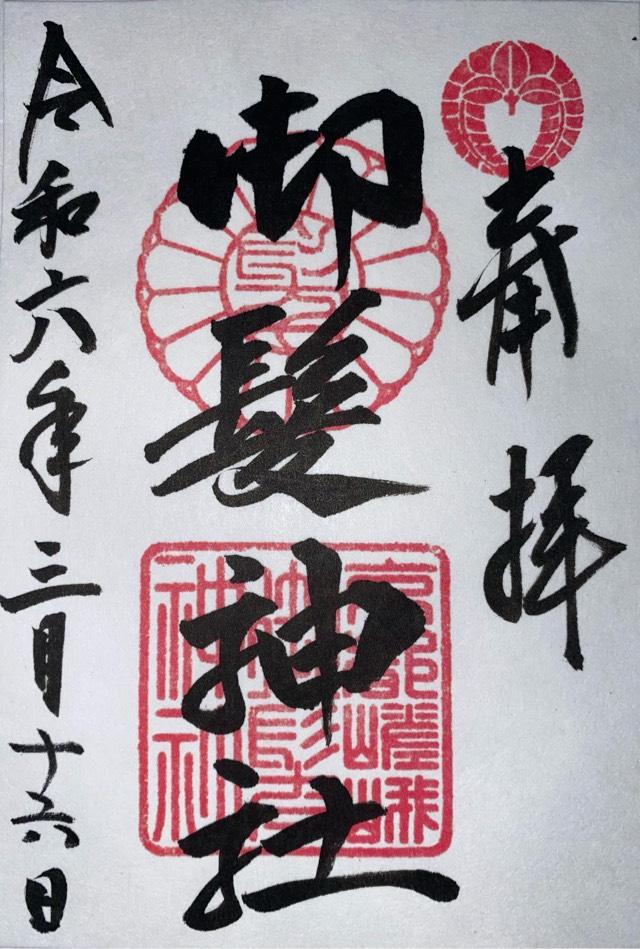 奉拝
御髪神社
京都嵯峨
神社
令和六年三月十六日